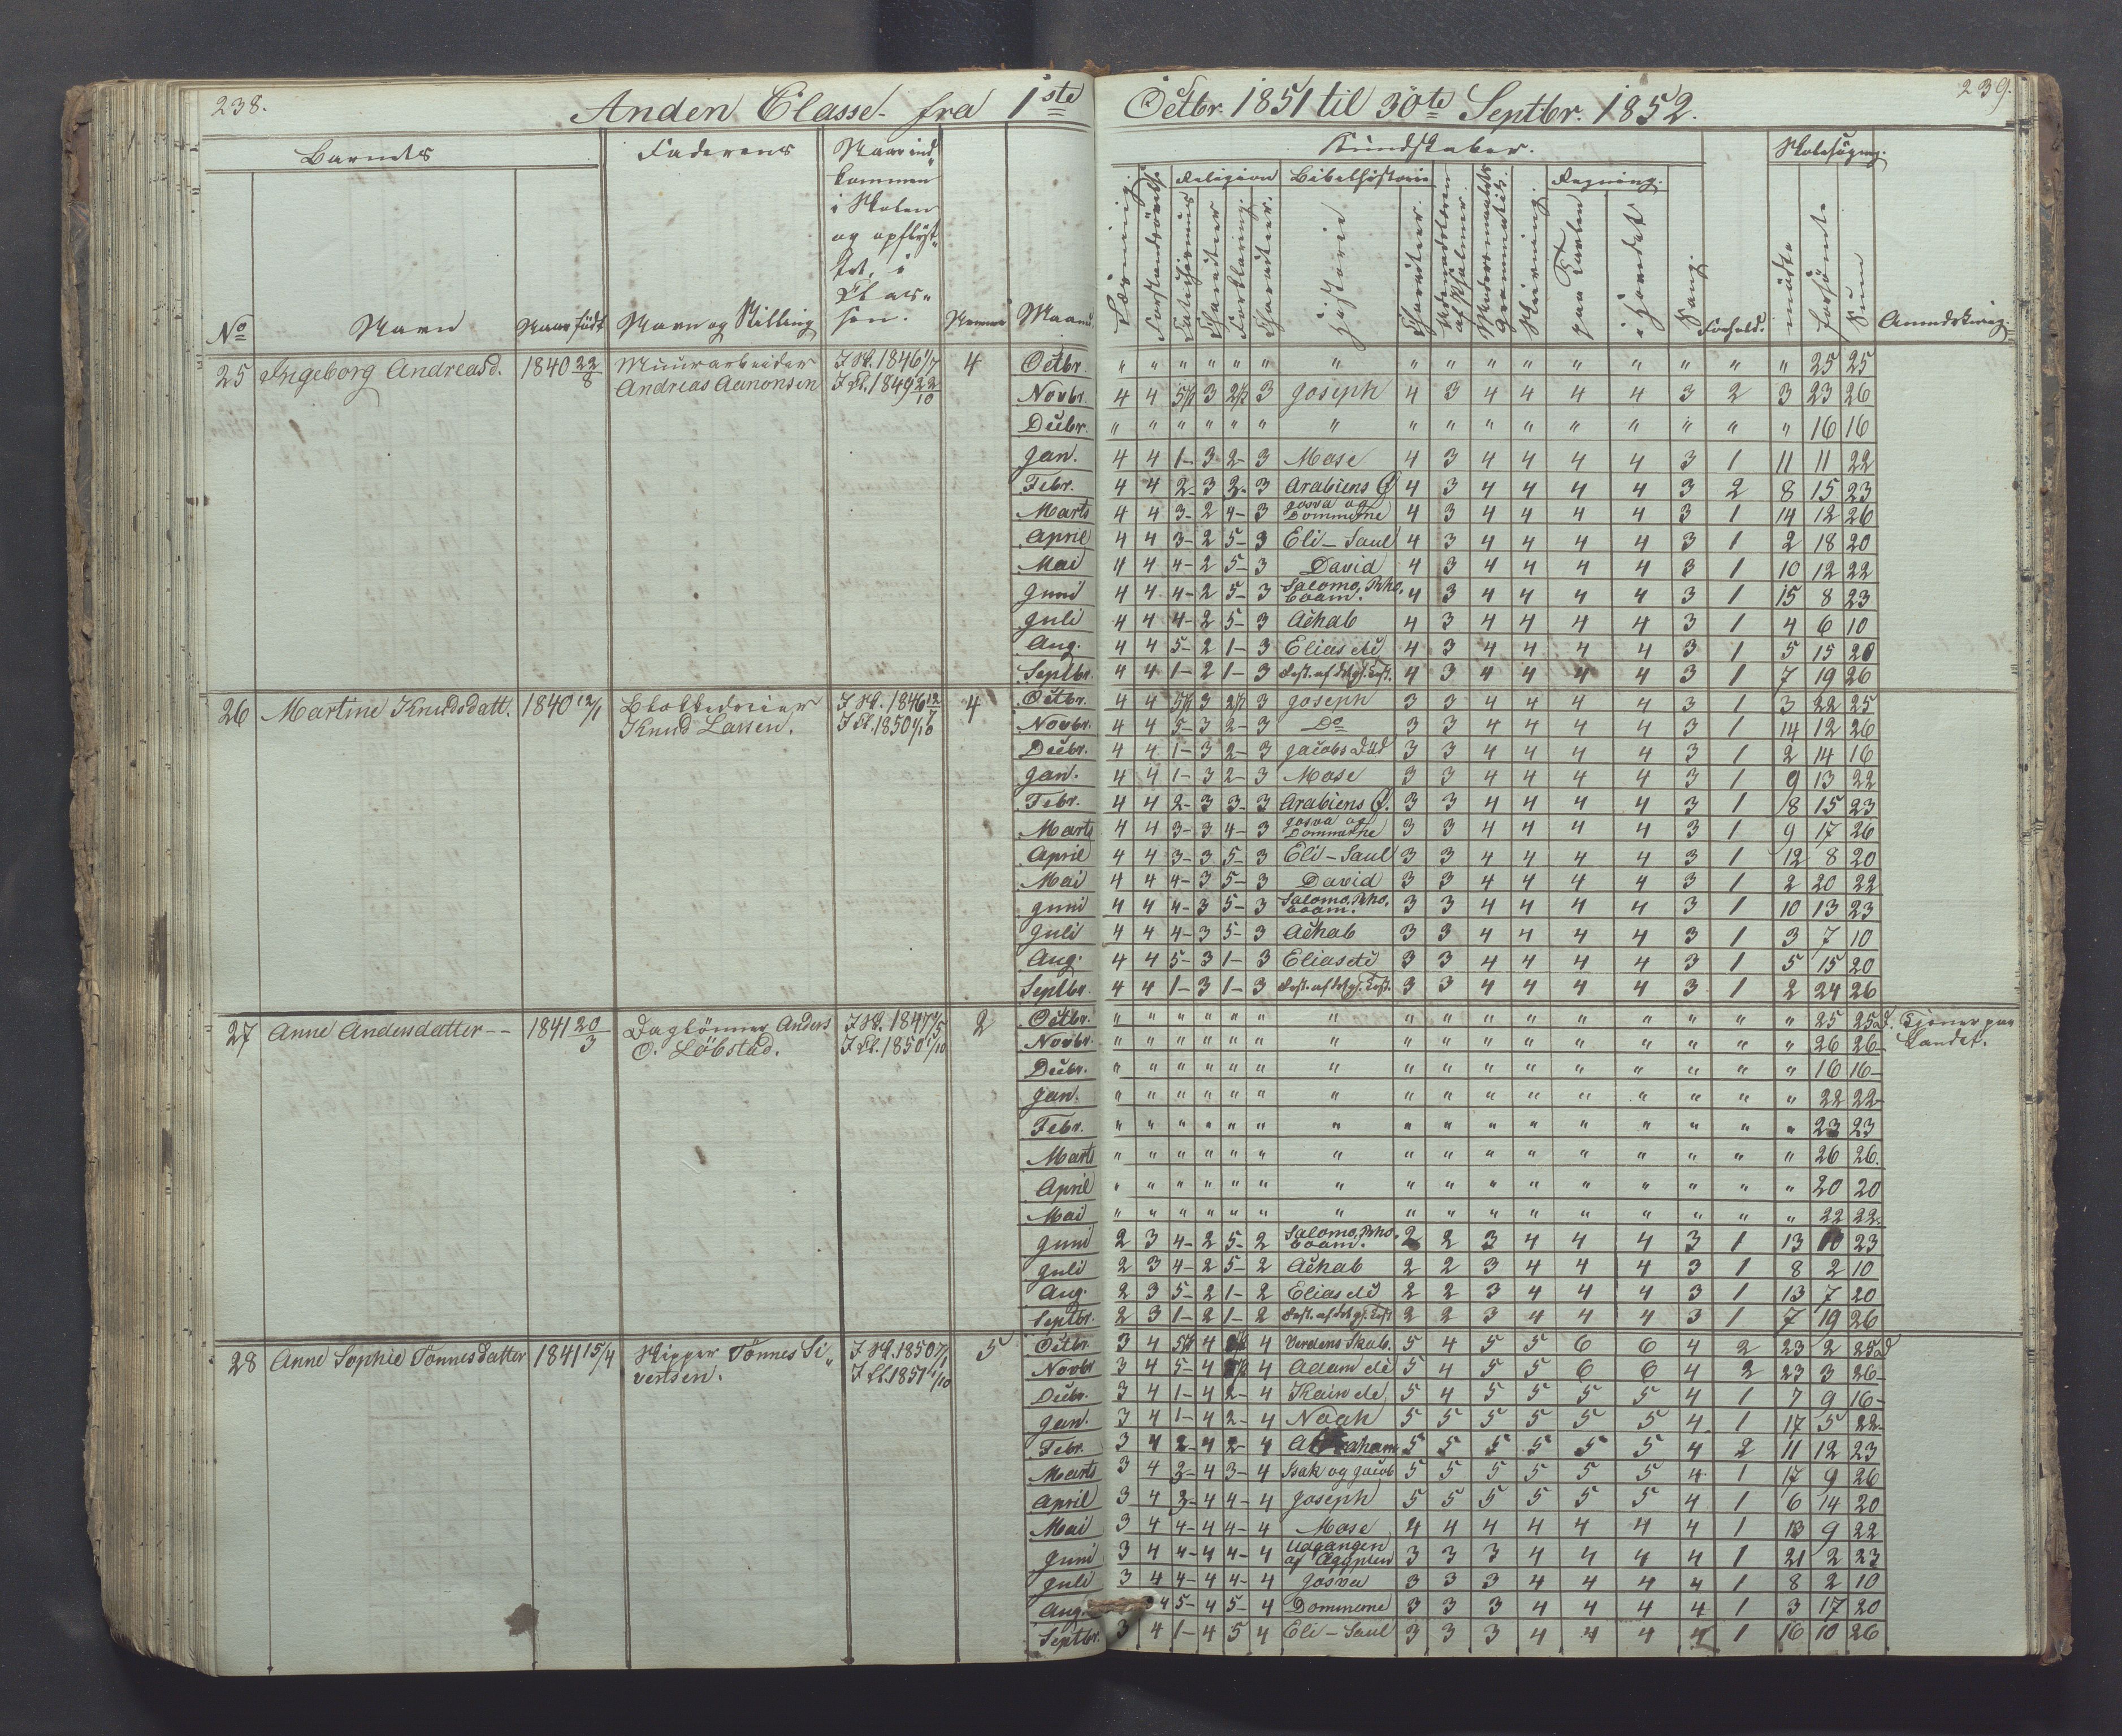 238.
Anden Classe fra 1ste
Octbr. 1851 til 30te Septbr. 1852.
239.
Barnets
Faderens
Naar ind-
kommen
i Skolen
og opflyt-
tet i
Clas-
sen.
No
Navn
Naar født
Navn og Stilling
Maaned
Kundskaber.
Religion
Bibelhistorie
Regning.
Skolesøgning.
Læsning.
Forstandsøvelse
Catechismus
Character
Forklaring.
Character.
Historie
Character.
Udenadslæren af Psalmer.
Modersmaalets Grammatik.
Skrivning.
paa Tavlen
i Hovedet
Sang.
Forhold.
mødte
forsømte
Sum
Anmærkning.
25 Ingeborg Andreasd. 1840 22/8 Muurarbeider I Sk. 1846 1/7 4
Andreas Aanonsen I Cl. 1849 22/10
Octbr. " " " " " " " " " " " " " " " " 25 25
Novbr. 4 4 5/1 3 2/3 3 Joseph 4 3 4 4 4 4 3 2 3 23 26
Decbr. " " " " " " " " " " " " " " " " 16 16
Jan. 4 4 1- 3 2- 3 Mose 4 3 4 4 4 4 3 1 11 11 22
Febr. 4 4 2- 3 2- 3 Arabiens Ø 4 3 4 4 4 4 3 2 8 15 23
Marts 4 4 3- 2 4- 3 Josva og Dommerne 4 3 4 4 4 4 3 1 14 12 26
April 4 4 3- 2 5- 3 Eli - Saul 4 3 4 4 4 4 3 1 2 18 20
Mai 4 4 4- 2 5- 3 David 4 3 4 4 4 4 3 1 10 12 22
Juni 4 4 4- 2 5- 3 Salomo, Reho- boam. 4 3 4 4 4 4 3 1 15 8 23
Juli 4 4 4- 2 5- 3 Achab 4 3 4 4 4 4 3 1 4 6 10
Aug. 4 4 5- 2 1- 3 Elias etc 4 3 4 4 4 4 3 1 5 15 20
Septbr. 4 4 1- 2 1- 3 4 3 4 4 4 4 3 1 7 19 26
26 Martine Knudsdatt. 1840 12/1 Blokkedreier I Sk. 1846 12/7 4
Knud Lassen. I Cl. 1850 1/10
Octbr. 4 4 5/1 3 2/3 3 Joseph 3 3 4 4 4 4 3 1 3 22 25
Novbr. 4 4 5- 3 2- 3 Do 3 3 4 4 4 4 3 1 14 12 26
Decbr. 4 4 1- 3 2- 3 Jacobs Død 3 3 4 4 4 4 3 1 2 14 16
Jan. 4 4 1- 3 2- 3 Mose 3 3 4 4 4 4 3 1 9 13 22
Febr. 4 4 2- 3 3- 3 Arabiens Ø. 3 3 4 4 4 4 3 1 8 15 23
Marts 4 4 3- 3 4- 3 Josva og Dommerne 3 3 4 4 4 4 3 1 9 17 26
April 4 4 3- 3 5- 3 Eli - Saul 3 3 4 4 4 4 3 1 12 8 20
Mai 4 4 4- 3 5- 3 David 3 3 4 4 4 4 3 1 2 20 22
Juni 4 4 4- 3 5- 3 Salomo, Reho- boam. 3 3 4 4 4 4 3 1 10 13 23
Juli 4 4 4- 3 5- 3 Achab 3 3 4 4 4 4 3 1 3 7 10
Aug. 4 4 5- 3 1- 3 Elias etc 3 3 4 4 4 4 3 1 5 15 20
Septbr. 4 4 1- 3 1- 3 3 3 4 4 4 4 3 1 2 24 26
27 Anne Andersdatter -- 1841 20/3 Daglønner Anders I Sk. 1847 1/5 2
O. Løbstad. I Cl. 1850 1/10
Octbr. " " " " " " " " " " " " " " " " 25 25 d. Tjener paa
Novbr. " " " " " " " " " " " " " " " " 26 26- Landet.
Decbr. " " " " " " " " " " " " " " " " 16 16-
Jan. " " " " " " " " " " " " " " " " 22 22-
Febr. " " " " " " " " " " " " " " " " 23 23
Marts " " " " " " " " " " " " " " " " 26 26.
April " " " " " " " " " " " " " " " " 20 20
Mai " " " " " " " " " " " " " " " " 22 22.
Juni 2 3 4- 2 5- 2 Salomo, Reho- boam. 2 2 3 4 4 4 3 1 13 10 23
Juli 2 3 4- 2 5- 2 Achab 2 2 3 4 4 4 3 1 8 2 10
Aug. 2 3 5- 2 1- 2 Elias etc 2 2 3 4 4 4 3 1 13 7 20
Septbr. 2 3 1- 2 1- 2 2 2 3 4 4 4 3 1 7 19 26
28 Anne Sophie Tønnesdatter 1841 15/4 Skipper Tønnes Si- I Sk. 1850 7/1 5
vertsen. I Cl. 1851 1/10
Octbr. 3 4 5/1 4 4 Verdens Skab. 5 4 5 5 6 6 4 2 23 2 25 d
Novbr 3 4 5- 4 4 Adam etc 5 4 5 5 6 6 4 2 23 3 26-
Decbr. 3 4 1- 4 2- 4 Kain etc. 5 4 5 5 5 5 4 1 7 9 16-
Jan. 3 4 1- 4 2- 4 Noah 5 5 5 5 5 5 4 1 17 5 22-
Febr. 3 4 2- 4 2- 4 Abraham 5 5 5 5 5 5 4 2 11 12 23
Marts 3 4 3- 4 3- 4 Isak og Jacob 5 5 5 5 5 5 4 1 17 9 26
April 3 4 3- 4 4- 4 Joseph 5 5 5 5 5 5 4 1 6 14 20
Mai 3 4 4- 4 4- 4 Mose 4 4 4 4 4 4 4 1 13 9 22
Juni 3 4 4- 4 4- 4 Udgangen af Ægypten 3 3 3 4 4 4 4 1 21 2 23
Juli 3 4 4- 4 4- 4 Josva 3 3 3 4 4 4 4 1 8 2 10
Aug. 4 5- 4 5- 4 Dommerne 3 3 3 4 4 4 4 1 3 17 20
Septbr. 3 4 1- 4 5 4 Eli - Saul 3 3 3 4 4 4 4 1 16 10 26